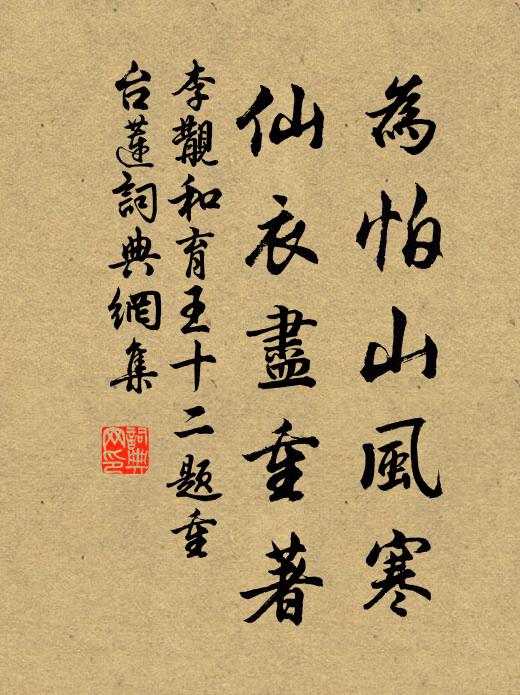 為怕山風寒
仙衣盡重著
李觀和育王十二題重
台蓮詞典網集
詞典網印